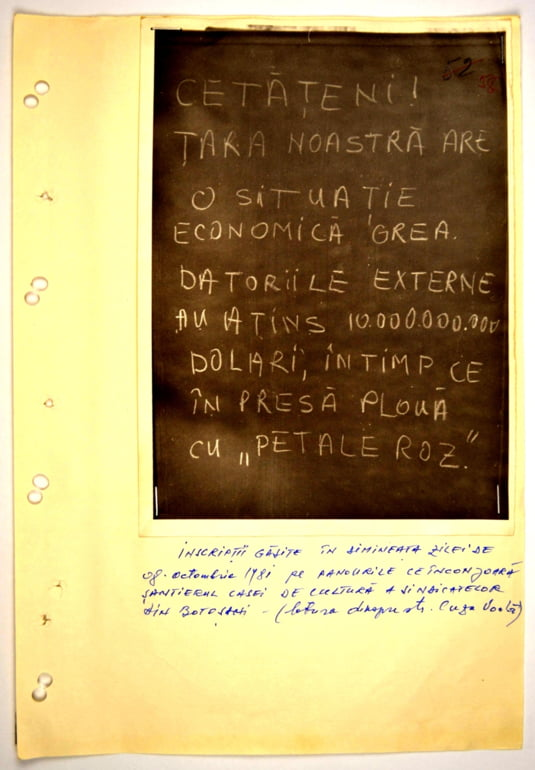 52
58
CETĂȚENI!
ȚARA NOASTRĂ ARE
O SITUAȚIE
ECONOMICĂ GREA.
DATORIILE EXTERNE
AU ATINS 10.000.000.000
DOLARI, ÎN TIMP CE
ÎN PRESĂ PLOUĂ
CU „PETALE ROZ."
INSCRIPȚII GĂSITE ÎN DIMINEAȚA ZILEI DE
08. octombrie 1981 pe PANOURILE CE ÎNCONJOARĂ
ȘANTIERUL CASEI DE CULTURĂ A SINDICATELOR
DIN BOTOȘANI - (latura dinspre str. Cuza Vodă)